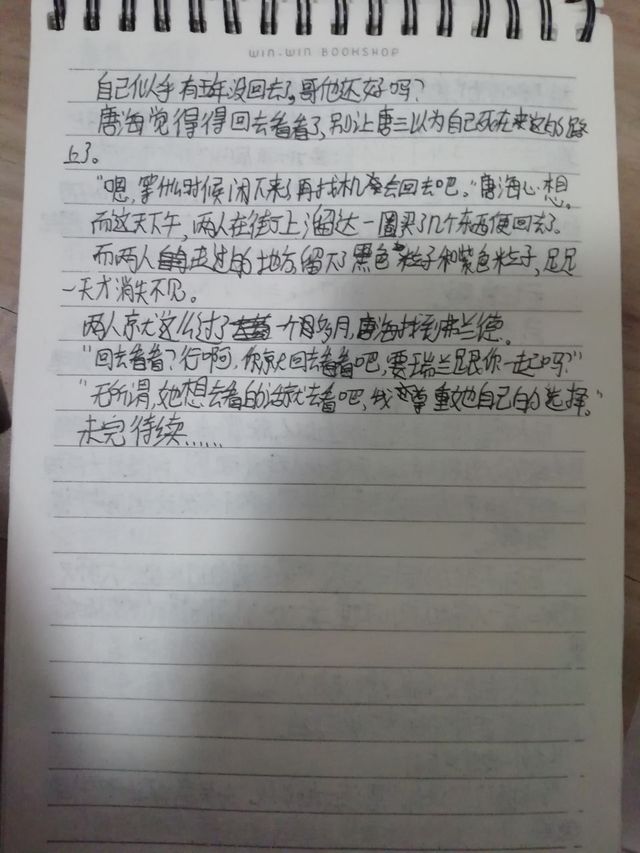 WIN-WIN BOOKSHOP
自己似乎有五年没回去了,哥他还好吗?
唐海觉得得回去看看了,别让唐三以为自己死在来这的路
上了。
"嗯,等什么时候闲下来了再找机会回去吧。"唐海心想。
而这天下午,两人在街上溜达一圈买了几个东西便回去了。
而两人走过的地方留下了黑色粒子和紫色粒子,足足
一天才消失不见。
两人就这么过了一个月多月,唐海找到弗兰德。
"回去看看?行啊,你就回去看看吧,要瑞兰跟你一起吗?"
"无所谓,她想去看的话就去看吧,我尊重她自己的选择。"
未完待续......